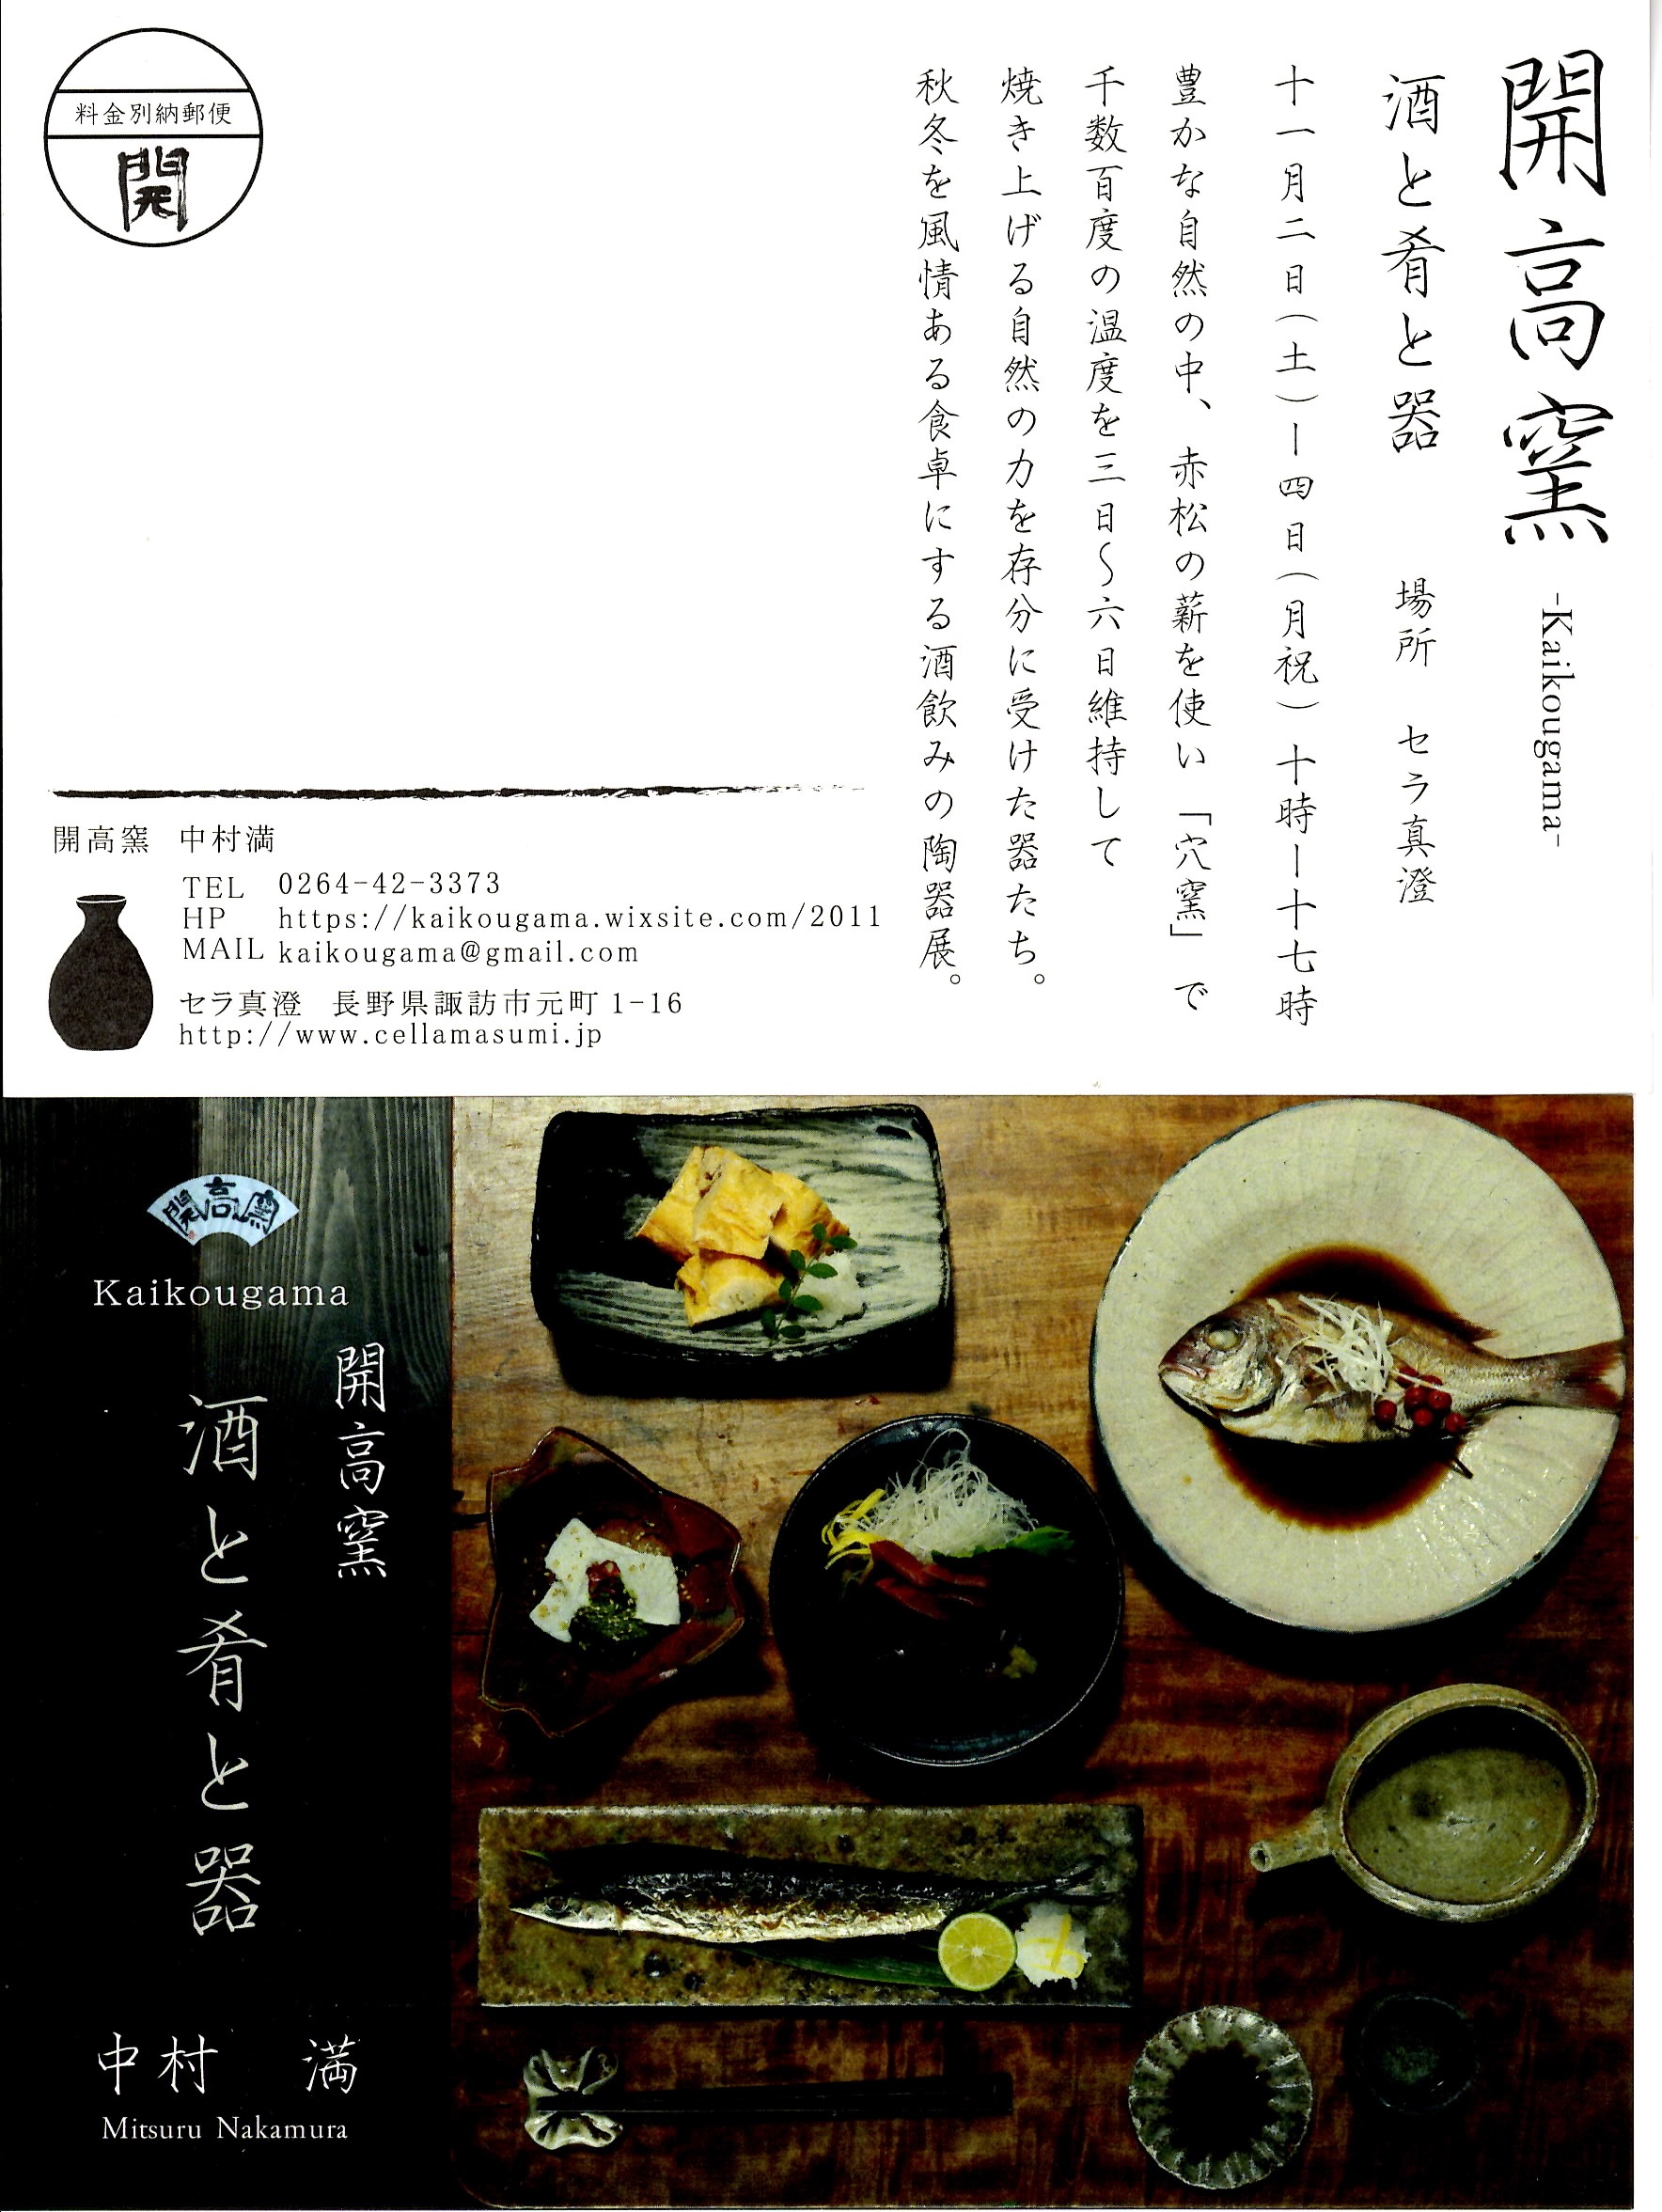 開高窯 -Kaikougama-
酒と肴と器 場所 セラ真澄
十一月二日(土)ー四日(月祝)十時ー十七時
豊かな自然の中、赤松の薪を使い「穴窯」で
千数百度の温度を三日〜六日維持して
焼き上げる自然の力を存分に受けた器たち。
秋冬を風情ある食卓にする酒飲みの陶器展。
料金別納郵便
開
開高窯 中村満
TEL 0264-42-3373
HP https://kaikougama.wixsite.com/2011
MAIL kaikougama@gmail.com
セラ真澄 長野県諏訪市元町1-16
http://www.cellamasumi.jp
開高窯
Kaikougama
開高窯
酒と肴と器
中村 満
Mitsuru Nakamura